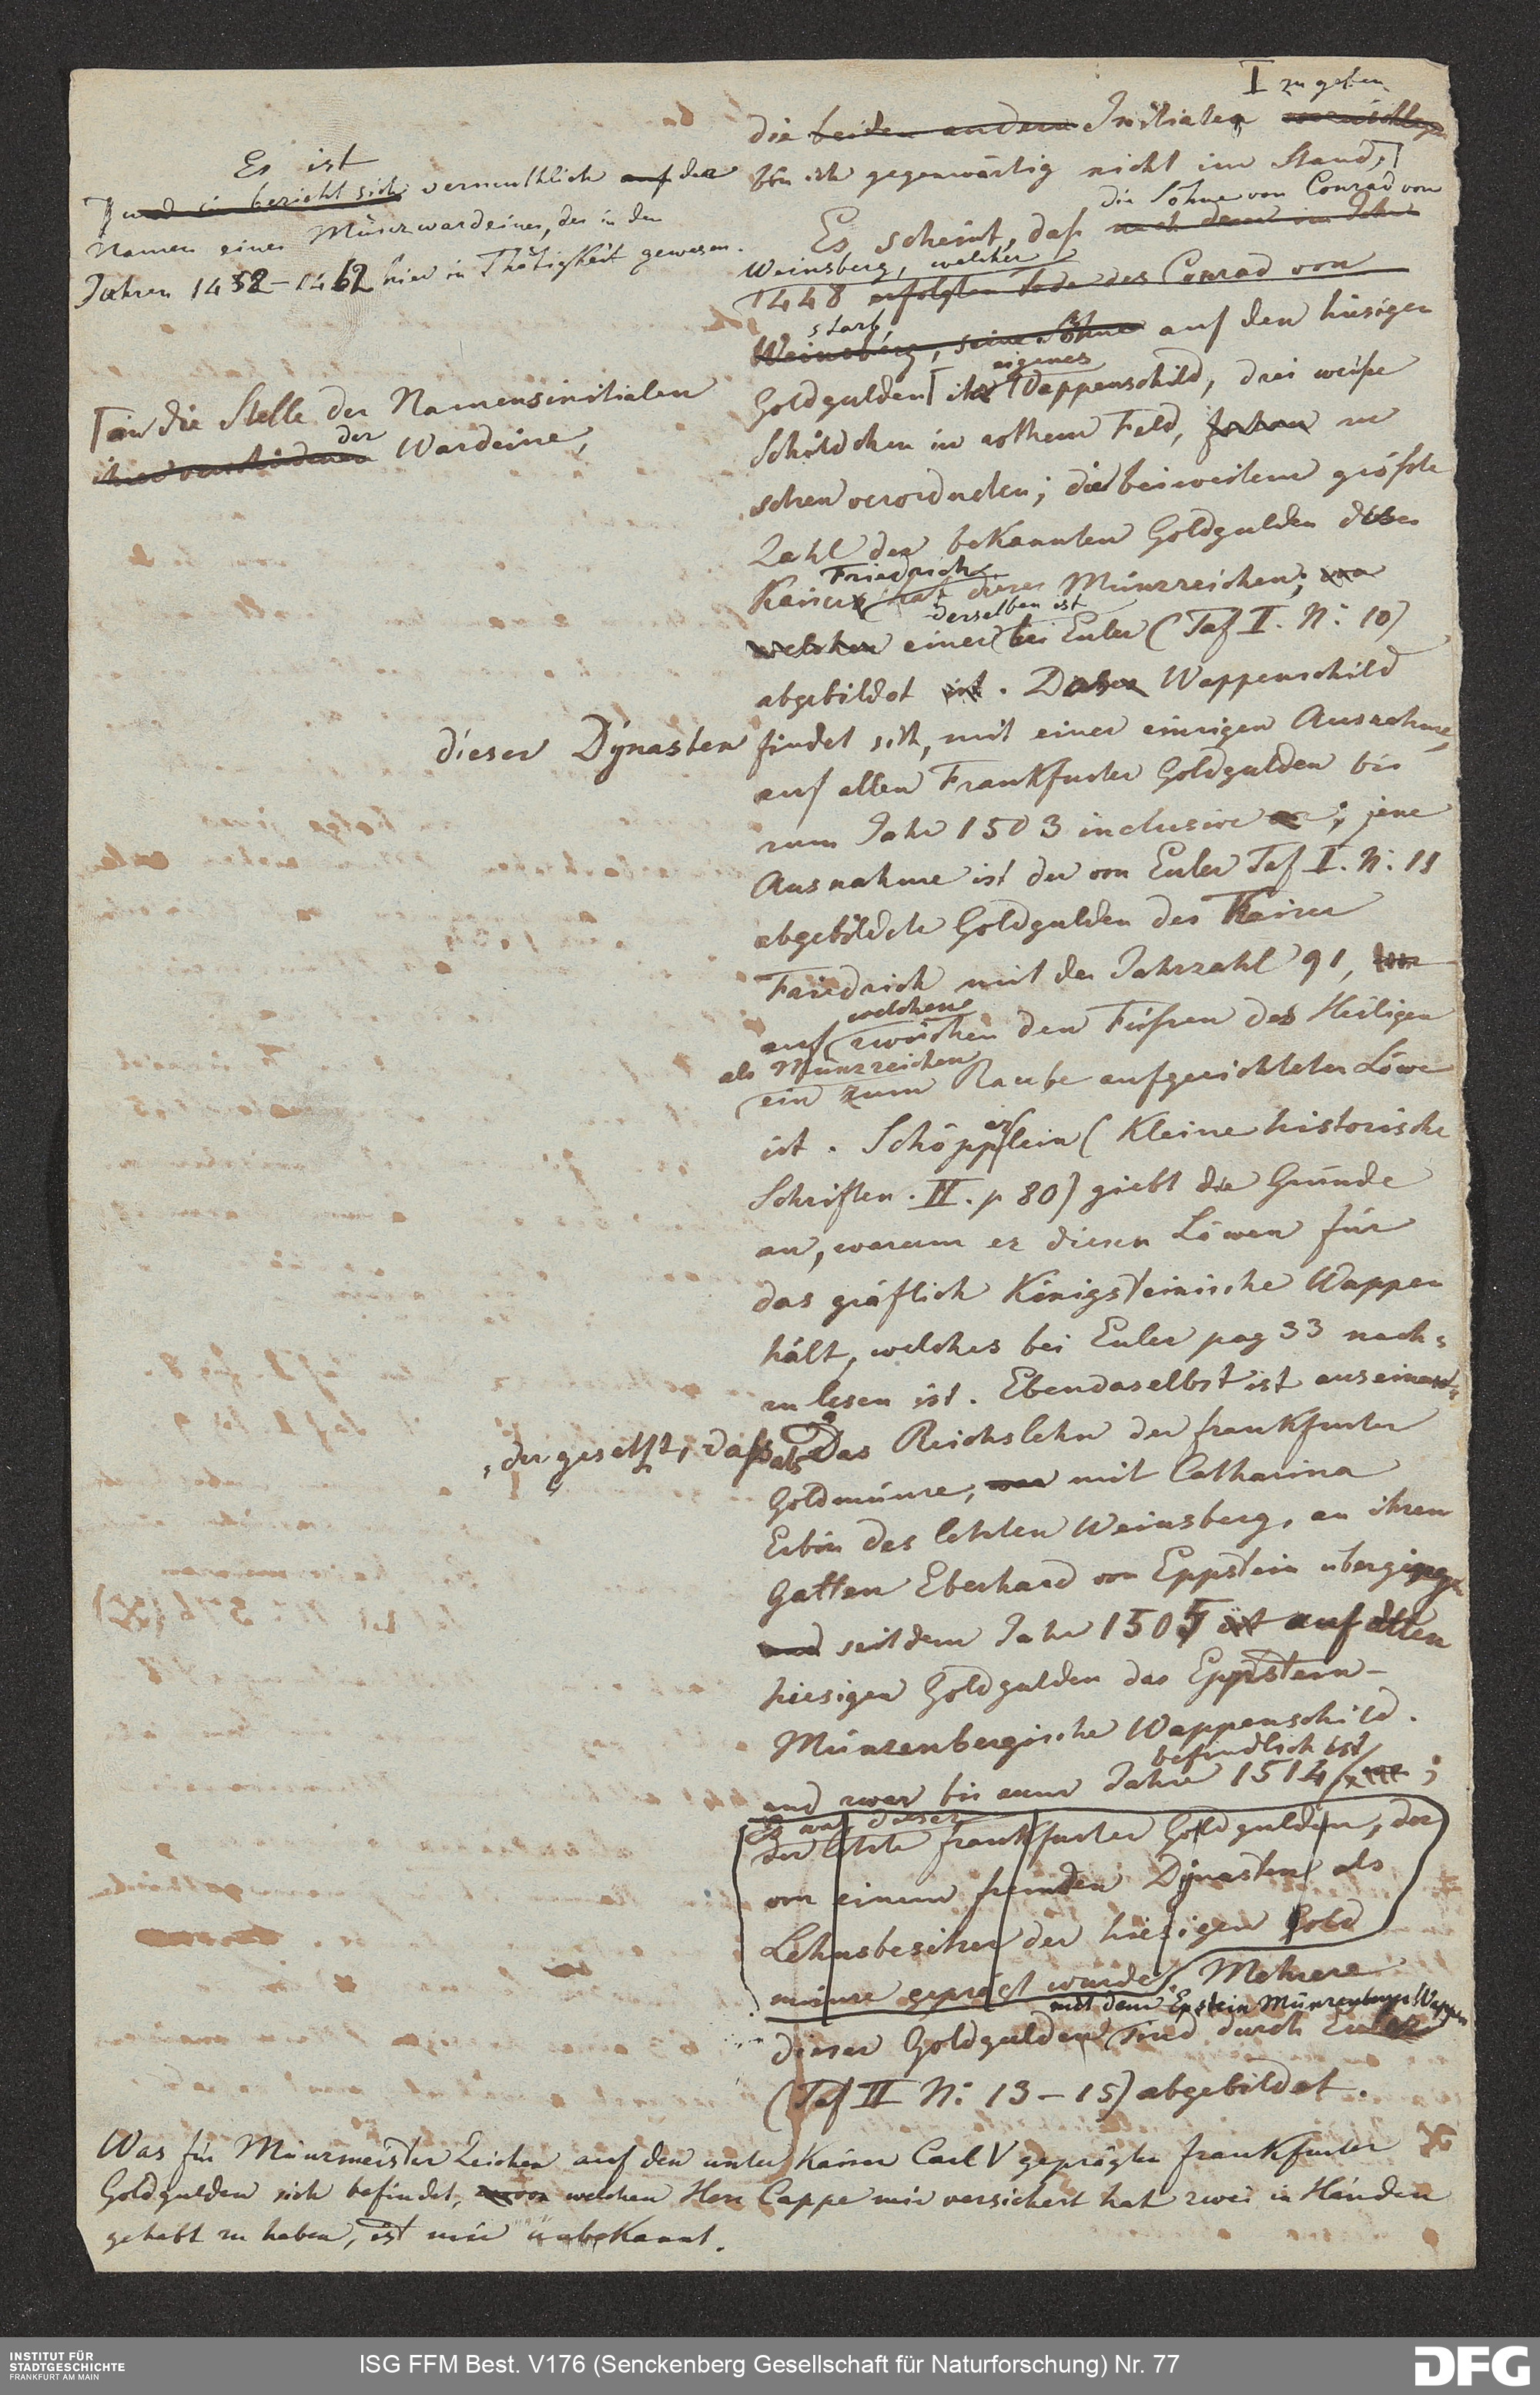 I zu geben
die beiden andern Initialen
bin ich gegenwärtig nicht im Stand,
Es ist
und sie bezieht sich vermuthlich auf der
Namen eines Münzwardeines, der in den
Jahren 1452–1462 hier in Thätigkeit gewesen.
die Söhne von Conrad von
Es scheint, daß nach dem im Jahr
Weinsberg, welcher
1448 erfolgten Tode des Conrad von
starb,
Weinsberg, seine Söhne auf den hiesigen
eigenes
Goldgulden ihr Wappenschild, drei weiße
an die Stelle der Namensinitialen
der
ihrer verschiedenen Wardeine,
Schildchen in rothem Feld, zu
schen verordneten; die bei weitem größte
Zahl der bekannten Goldgulden des
Friedrich
Kaisers hat dieses Münzzeichen; von
derselben ist
welchen einer bei Euler (Taf II. N: 10)
abgebildet ist. Dieser Wappenschild
dieser Dynasten
findet sich, mit einer einzigen Ausnahme,
auf allen Frankfurter Goldgulden bis
zum Jahr 1503 inclusive; jene
Ausnahme ist der von Euler Taf II. N: 11
abgebildete Goldgulden des Kaiser
Friedrich mit der Jahrzahl 91,
welchem
auf zwischen den Füßen des Heiligen
als Münzzeichen
ein zum Raube aufgerichteter Löwe
ist. Schöpperlein (Kleine historische
Schriften. II. p 80) giebt die Gründe
an, warum er diesen Löwen für
das gräflich Königsteinische Wappen
hält, welches bei Euler pag 33 nach=
zu lesen ist. Ebendaselbst ist auseinan=
der gesetzt, daß als das Reichslehn der frankfurter
Goldmünze, war mit Catharina
Erbin des letzten Weinsberg, an ihren
Gatten Eberhard von Eppstein überging
und seit dem Jahr 1505 ist auf allen
hiesigen Goldgulden das Eppstein-
Münzenbergische Wappenschild.
befindlich ist
und zwar bis zum Jahre 1514;
Es war dieser
der letzte frankfurter Goldgulden, der
von einem fremden Dynasten als
Lehnsbesitzer der hiesigen Gold
münze geprägt wurde. Mehrere
mit dem Epstein Münzenberger Wappen
dieser Goldgulden sind durch Euler
(Taf II N: 13–15) abgebildet.
Was für Münzmeister Zeichen auf den unter Kaiser Carl V geprägten frankfurter
Goldgulden sich befindet, von welchen Herr Cappe mir versichert hat zwei in Händen
gehabt zu haben, ist mir unbekannt.
INSTITUT FÜR
STADTGESCHICHTE
FRANKFURT AM MAIN
ISG FFM Best. V176 (Senckenberg Gesellschaft für Naturforschung) Nr. 77
DFG